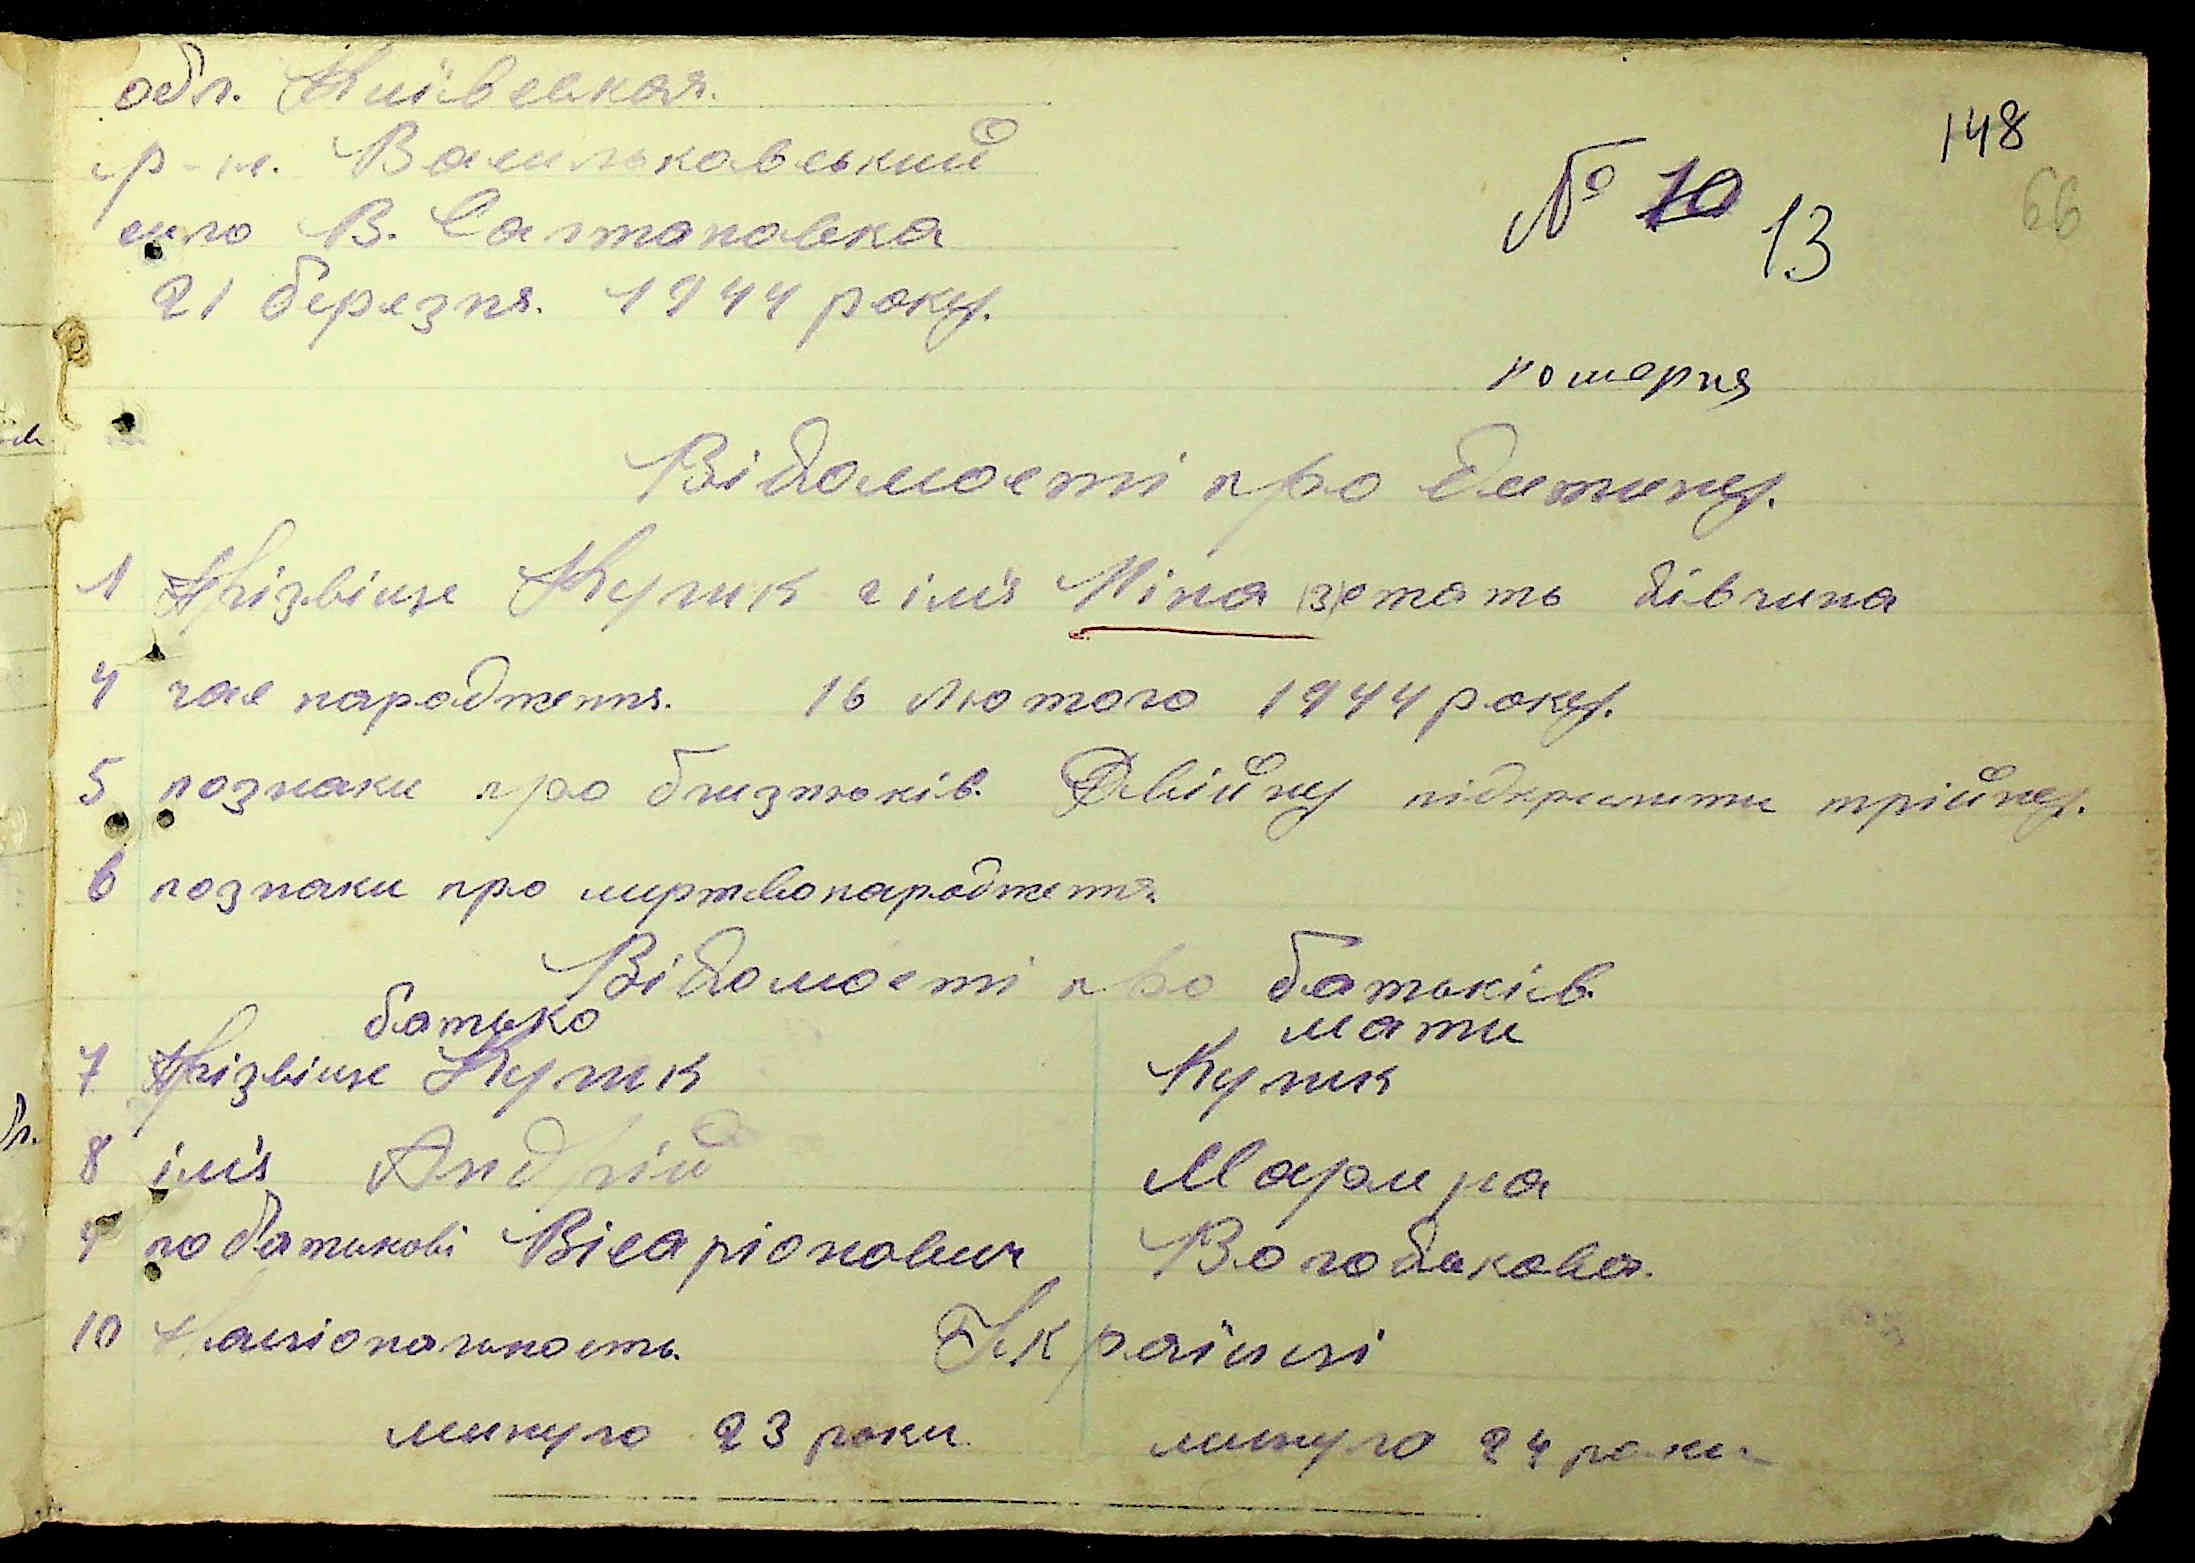 148
66
обл. Київськая.
р-н. Васильковський
село В. Салтановка
№ 10 13
21 березня. 1944 року.
Відомості про дитину.
1 Прізвіще Кулик 2 імя Ніна (3) стать дівчина
4 час народження. 16 лютого 1944 року.
5 познаки про близнюків. Двійну підкреслити трійну.
6 познаки про мертвонародження.
Відомості про батьків.
батько мати
7 Прізвіще Кулик Кулик
8 імя Андрій Марина
9 по батькові Вісаріонович
10 Національность. Українці
минуло 23 роки. минуло 24 роки